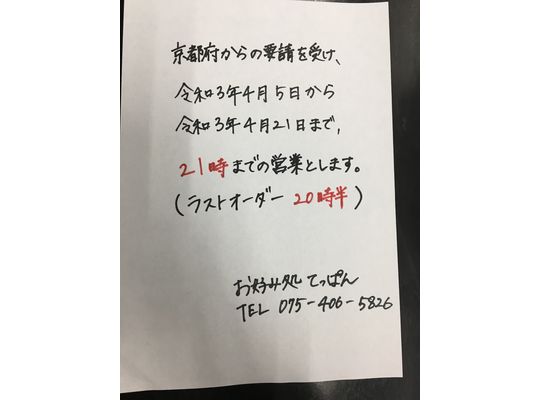 京都府からの要請を受け、
令和3年4月5日から
令和3年4月21日まで、
21時までの営業とします。
(ラストオーダー 20時半)
お好み処 てっぱん
TEL 075-406-5826